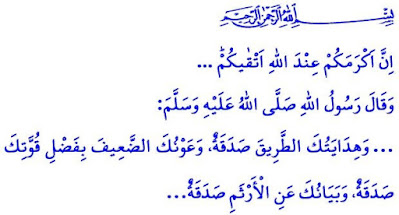 بِسْمِ اللهِ الرَّحْمٰنِ الرَّحِيمِ
اِنَّ اَكْرَمَكُمْ عِنْدَ اللهِ اَتْقٰيكُمْ ...
وَقَالَ رَسُولُ اللهِ صَلَّى اللهُ عَلَيْهِ وَسَلَّمَ:
... وَهِدَايَتُكَ الطَّرِيقَ صَدَقَةٌ، وَعَوْنُكَ الضَّعِيفَ بِفَضْلِ قُوَّتِكَ
صَدَقَةٌ، وَبَيَانُكَ عَنِ الْأَرْثَمِ صَدَقَةٌ...